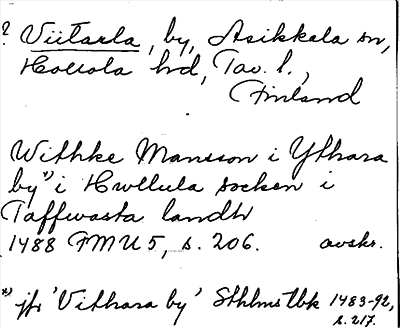 ? Viitaela, by, Asikkala sn,
Hollola hrd, Tav. l.,
Finland
Withke Mansson i Ythara
by *) i Hwllula socken i
Taffwasta landh
1488 FMU 5, s. 206. avskr.
*) jfr 'Vithara by' Sthlms tbk 1483-92,
s. 217.